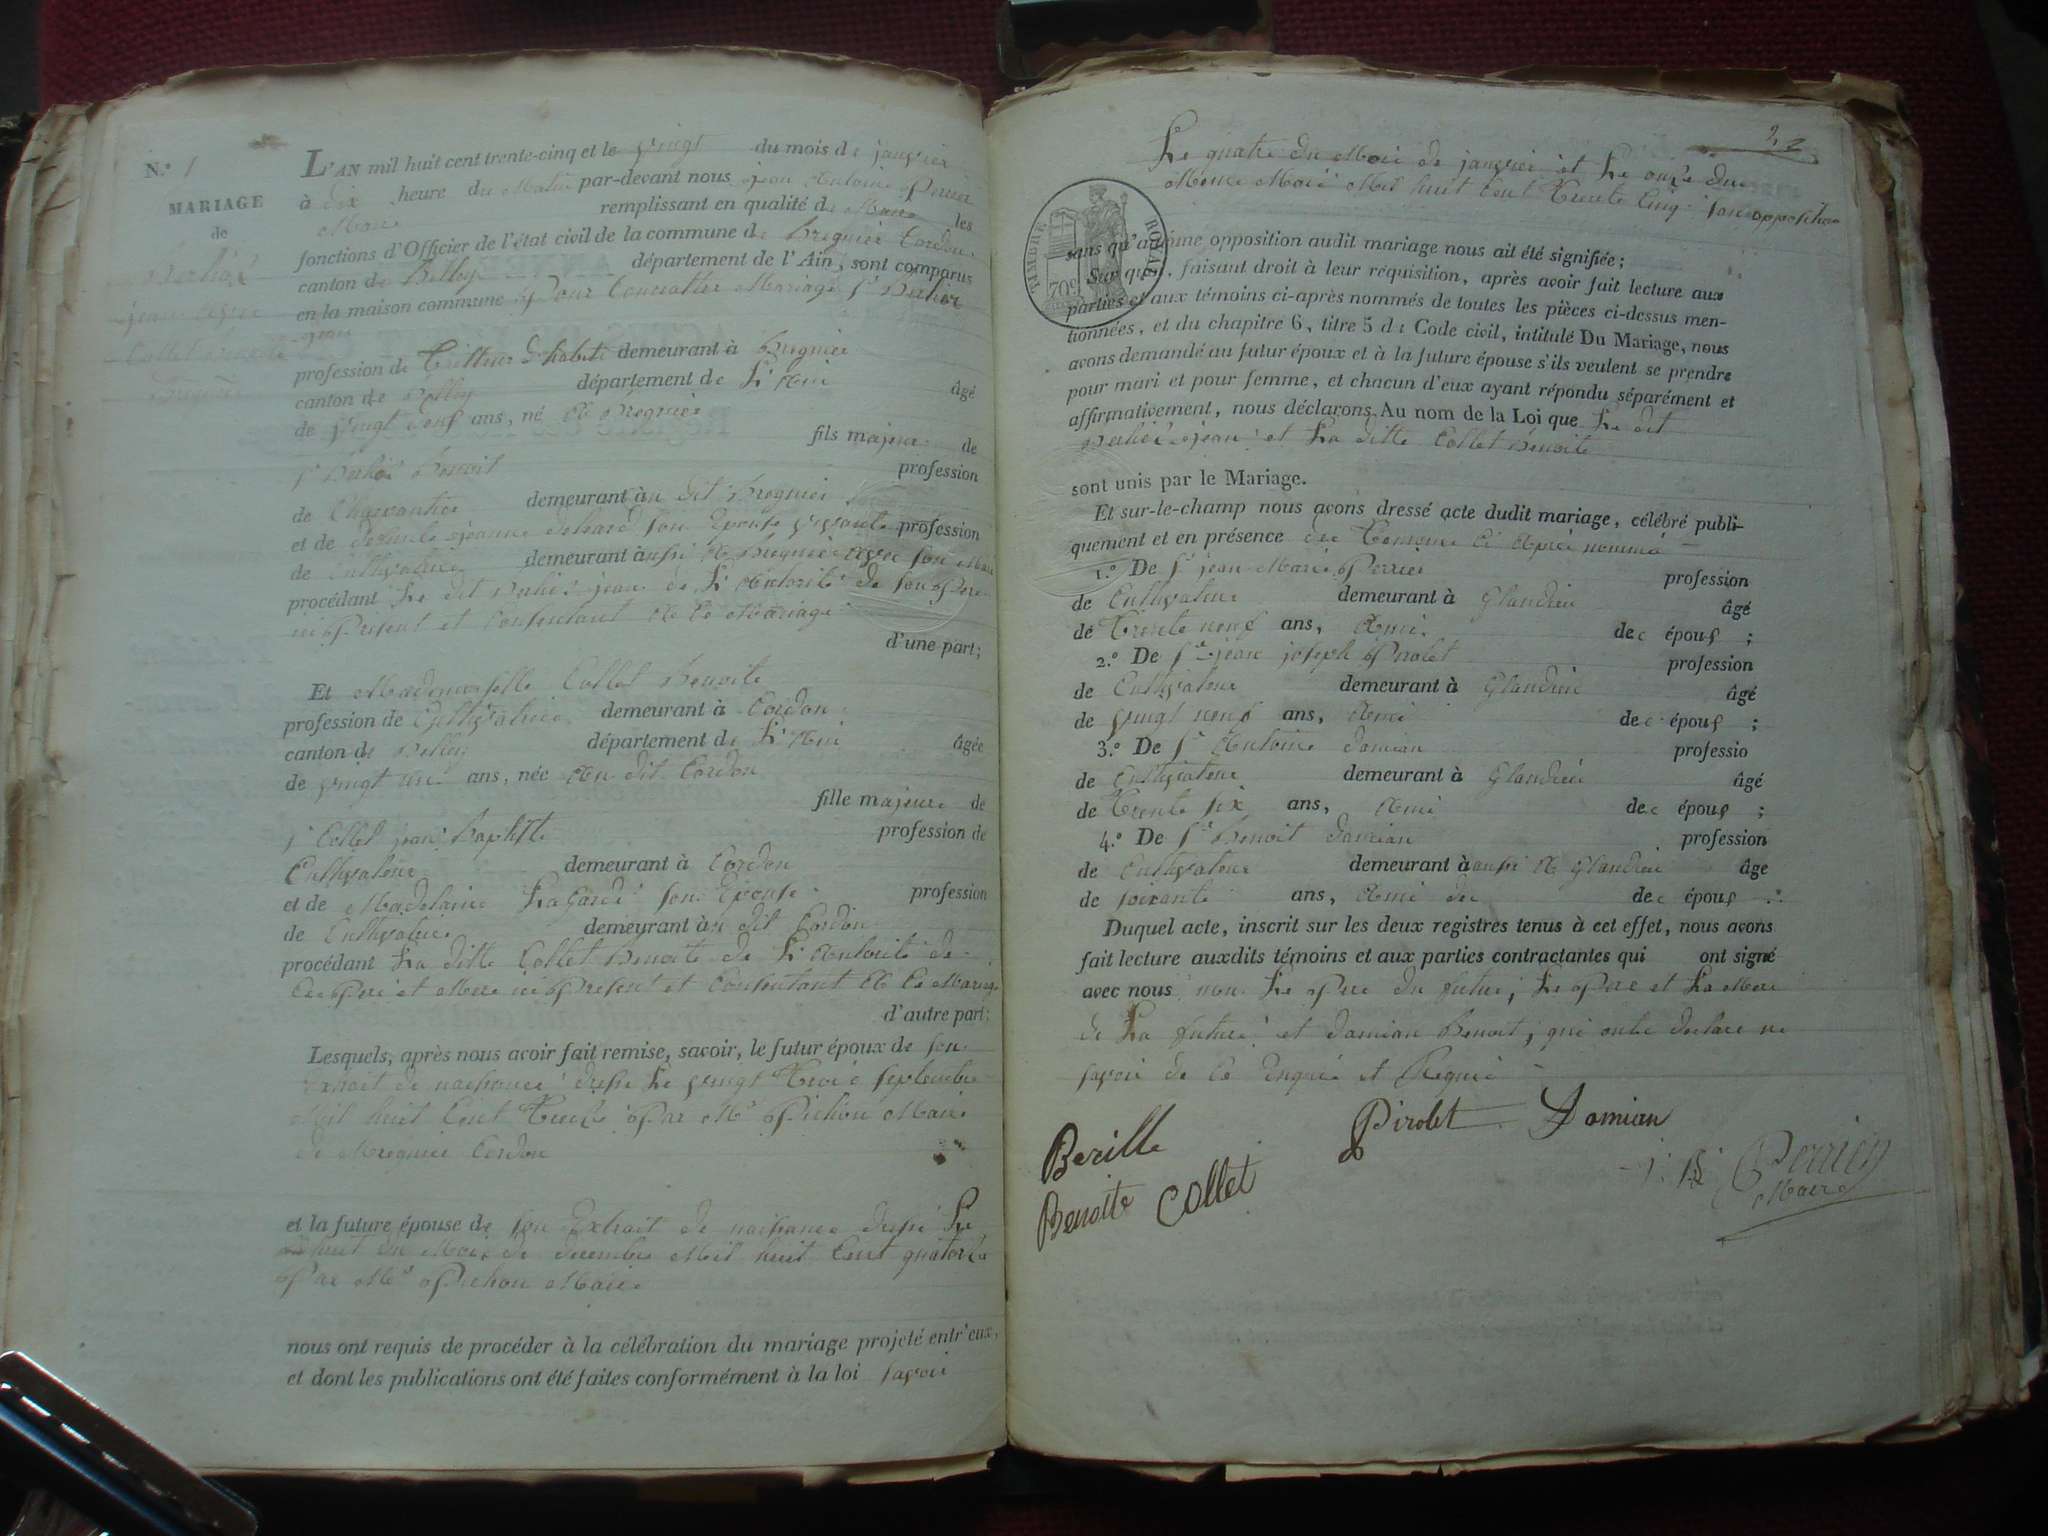 N.º 1
MARIAGE
de
jean avec
Collet Benoite
L'AN mil huit cent trente-cinq et le vingt du mois de janvier
à dix heure du Matin par-devant nous jean Antoine Perrier
Maire remplissant en qualité de Maire les
fonctions d'Officier de l'état civil de la commune de Bregnier Cordon
canton de Belley département de l'Ain, sont comparus
en la maison commune Pour Contracter Mariage Sr
jean
profession de Tailleur d'habits demeurant à Bregnier
canton de Belley département de L'Ain âgé
de vingt deux ans, né A Bregnier
fils majeur de
Sr Benoit profession
de Charpantier demeurant au dit Bregnier
et de jeanne son Epouse vivante profession
de Cultivatrice demeurant aussi A Bregnier avec son Mari
procédant Le dit jean de L'Autorité de son Pere
ici Present et Consentant A Ce Mariage
d'une part;
Et Mademoiselle Collet Benoite
profession de Cultivatrice demeurant à Cordon
canton de Belley département de L'Ain âgée
de vingt un ans, née Au dit Cordon
fille majeure de
Sr Collet jean Baptiste profession de
Cultivateur demeurant à Cordon
et de Madelaine Lagarde son Epouse profession
de Cultivatrice demeurant au dit Cordon
procédant La ditte Collet Benoite de L'Autorité de
Ces Pere et Mere ici Present et Consentant A Ce Mariage
d'autre part;
Lesquels, après nous avoir fait remise, savoir, le futur époux de son
Extrait de naissance dressé Le vingt Trois Septembre
Mil huit Cent Treize Par Mr Pichon Maire
de Bregnier Cordon
et la future épouse de son Extrait de naissance dressé Le
huit du Mois de decembre Mil huit Cent quatorze
Par Mr Pichon Maire
nous ont requis de procéder à la célébration du mariage projeté entr'eux,
et dont les publications ont été faites conformément à la loi savoir
2
Le quatre du Mois de janvier et Le onze du
Meme Mois Mil huit Cent Trente Cinq san opposition
TIMBRE ROYAL
70c
sans qu'aucune opposition audit mariage nous ait été signifiée;
Sur quoi, faisant droit à leur réquisition, après avoir fait lecture aux
parties et aux témoins ci-après nommés de toutes les pièces ci-dessus men-
tionnées, et du chapitre 6, titre 5 du Code civil, intitulé Du Mariage, nous
avons demandé au futur époux et à la future épouse s'ils veulent se prendre
pour mari et pour femme, et chacun d'eux ayant répondu séparément et
affirmativement, nous déclarons Au nom de la Loi que Le dit
jean et La ditte Collet Benoite
sont unis par le Mariage.
Et sur-le-champ nous avons dressé acte dudit mariage, célébré publi-
quement et en présence des Temoins Ci Après nommé
1.º De Sr jean Marie Perrier profession
de Cultivateur demeurant à Glandieu âgé
de Trente neuf ans, Ami des épous ;
2.º De Sr jean joseph Pirolet profession
de Cultivateur demeurant à Glandieu âgé
de vingt neuf ans, Ami des épous ;
3.º De Sr Antoine Damian professio
de Cultivateur demeurant à Glandieu âgé
de Trente six ans, Ami des épous ;
4.º De Sr Benoit Damian profession
de Cultivateur demeurant aussi A Glandieu âge
de soixante ans, Ami des épous .
Duquel acte, inscrit sur les deux registres tenus à cet effet, nous avons
fait lecture auxdits témoins et aux parties contractantes qui ont signé
avec nous non Le Pere du futur, Le Pere et La Mere
de La future et Damian Benoit, qui onts declare ne
savoir de Ce Enquis et Requis
Pirolet Damian
Berille
Benoite Collet
Perrier
Maire